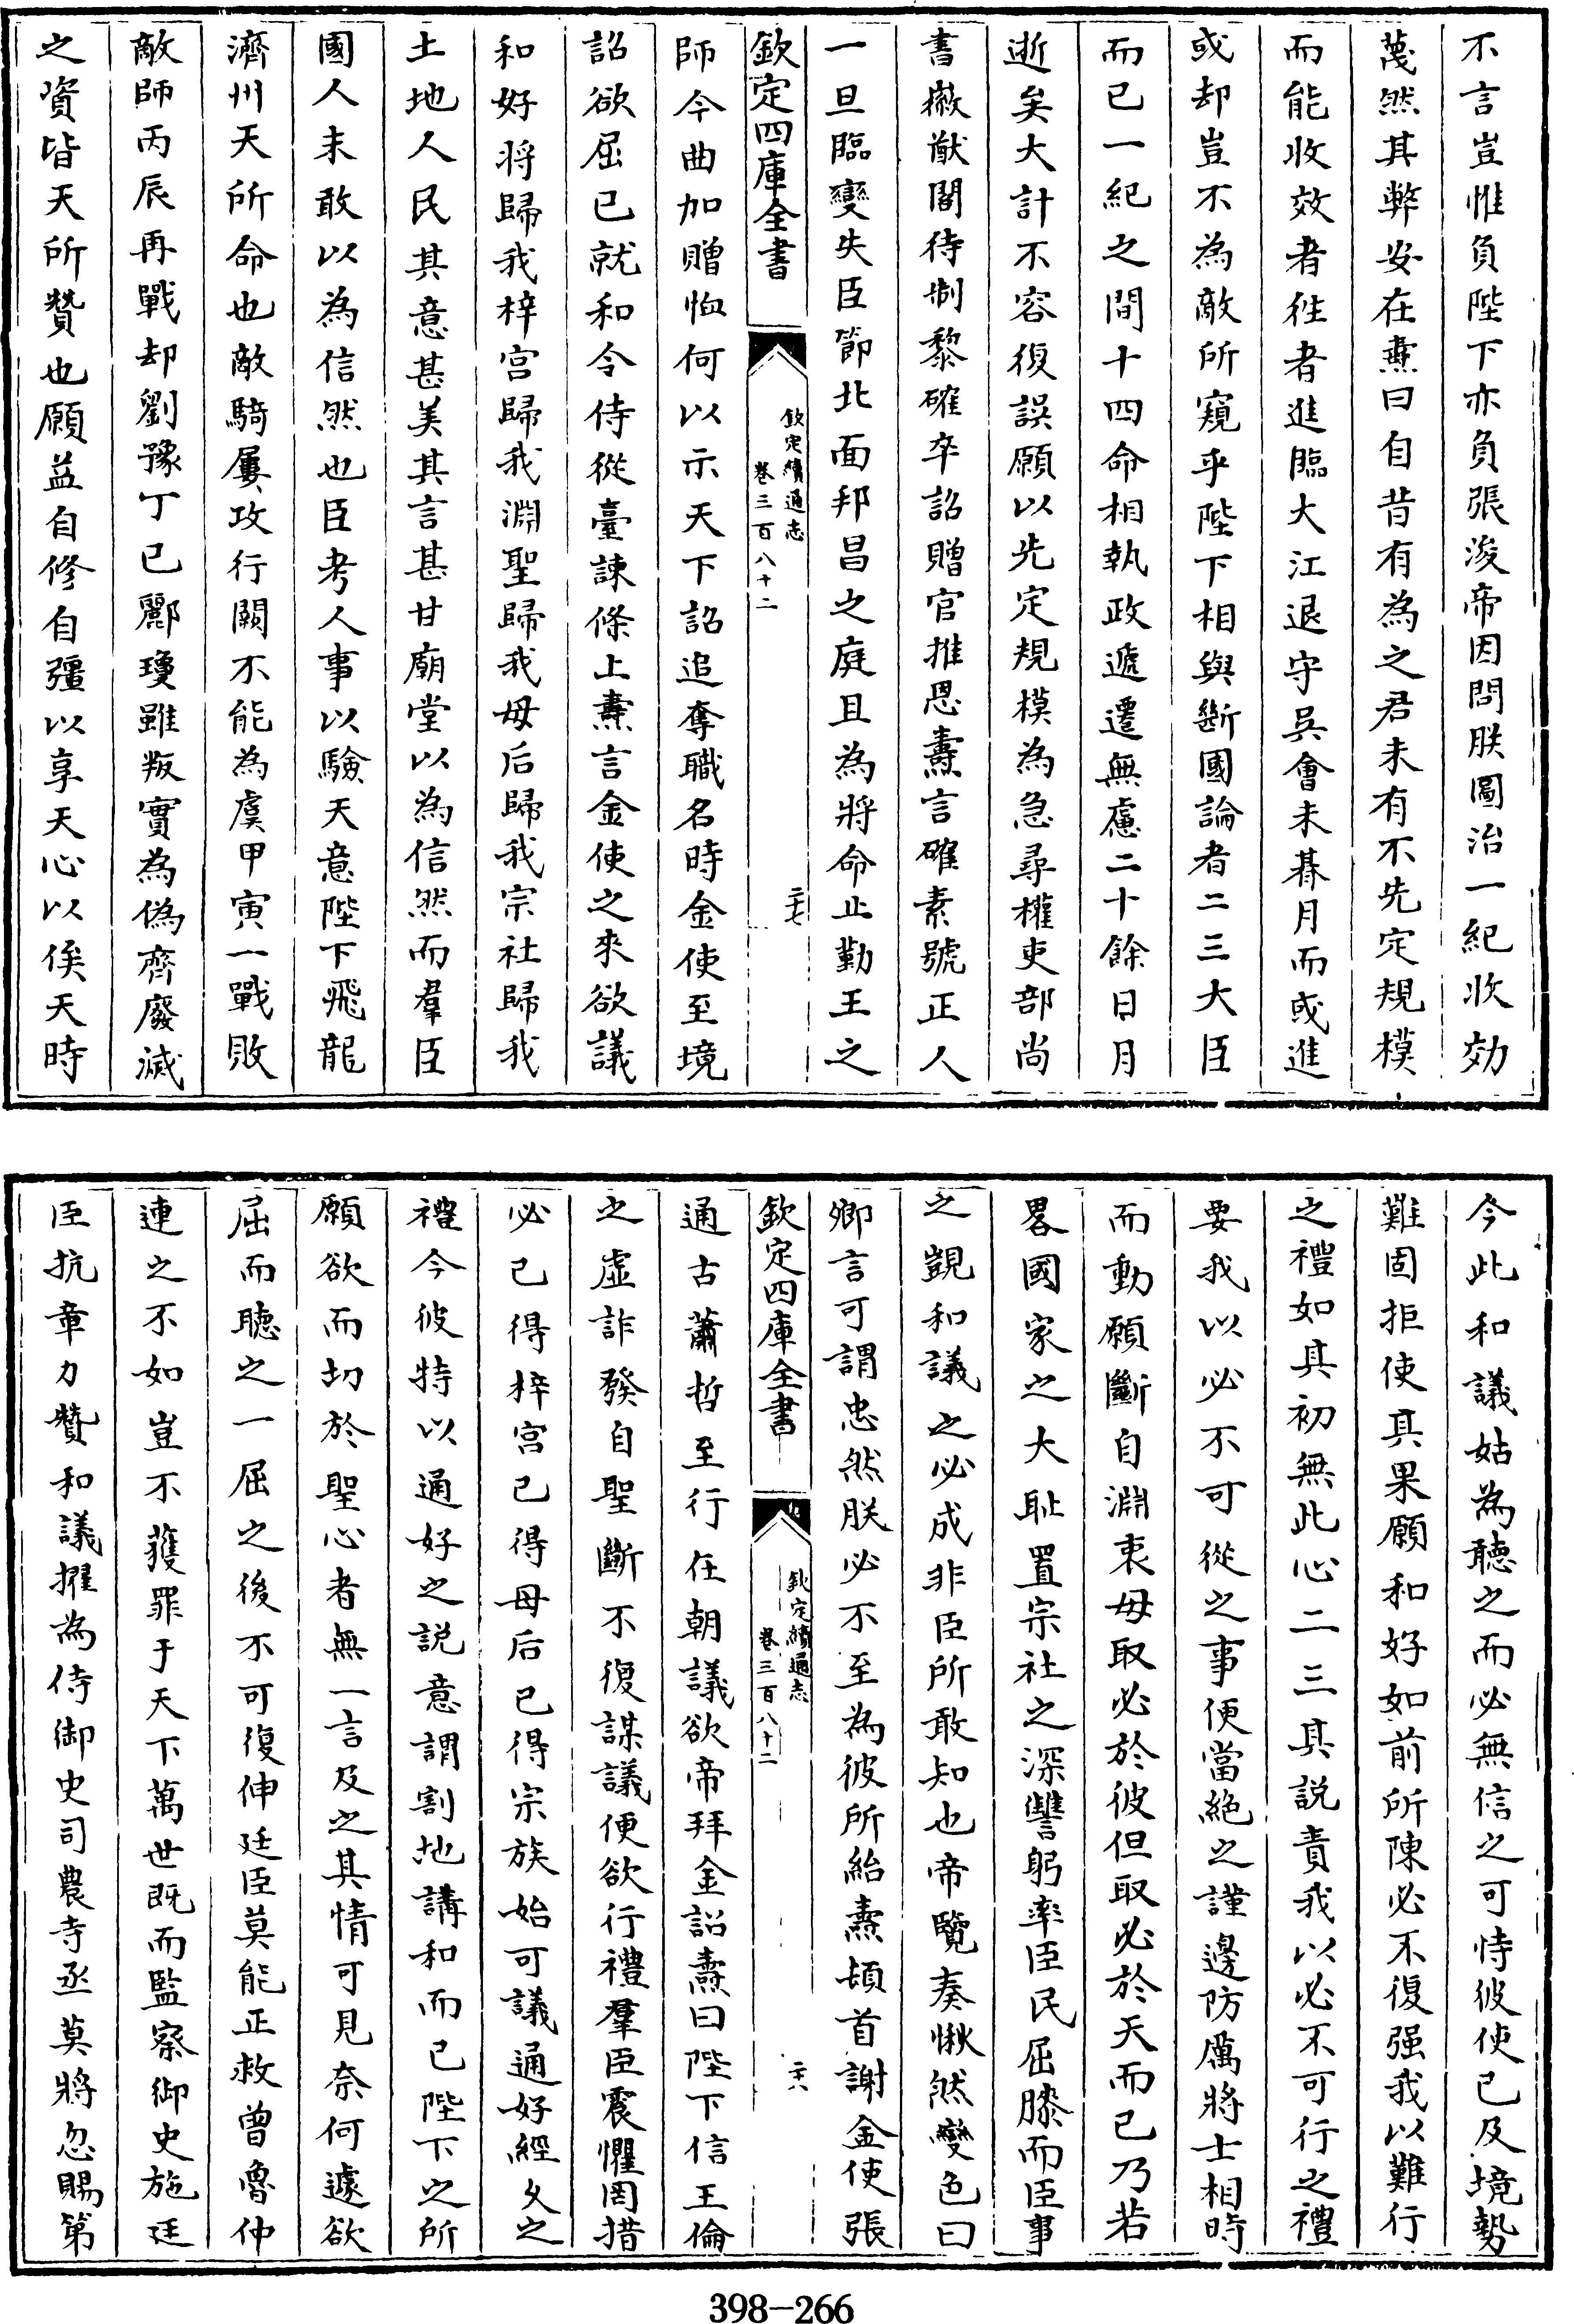 不言豈惟負陛下亦負張浚帝因問朕圖治一紀收効
蔑然其弊安在燾曰自昔有為之君未有不先定規模
而能收效者徃者進臨大江退守吳會未朞月而或進
或却豈不為敵所窺乎陛下相與斷國論者二三大臣
而已一紀之間十四命相執政遞遷無慮二十餘日月
逝矣大計不容復誤願以先定規模為急尋權吏部尚
書徽猷閣待制黎確卒詔贈官推恩燾言確素號正人
一旦臨變失臣節北面邦昌之庭且為將命止勤王之
欽定四庫全書
欽定續通志
卷三百八十二
二七
師今曲加贈恤何以示天下詔追奪職名時金使至境
詔欲屈已就和令侍從臺諫條上燾言金使之來欲議
和好將歸我梓宮歸我淵聖歸我母后歸我宗社歸我
土地人民其意甚美其言甚甘廟堂以為信然而羣臣
國人未敢以為信然也臣考人事以驗天意陛下飛龍
濟州天所命也敵騎屢攻行闕不能為虞甲寅一戰敗
敵師丙辰再戰却劉豫丁已酈瓊雖叛實為偽齊廢滅
之資皆天所贊也願益自修自彊以享天心以俟天時
今此和議姑為聽之而必無信之可恃彼使已及境勢
難固拒使其果願和好如前所陳必不復强我以難行
之禮如其初無此心二三其説責我以必不可行之禮
要我以必不可從之事便當絶之謹邊防厲將士相時
而動願斷自淵衷毋取必於彼但取必於天而已乃若
畧國家之大耻置宗社之深讐躬率臣民屈膝而臣事
之覬和議之必成非臣所敢知也帝覽奏愀然變色曰
卿言可謂忠然朕必不至為彼所紿燾頓首謝金使張
欽定四庫全書
欽定續通志
卷三百八十二
二八
通古蕭哲至行在朝議欲帝拜金詔燾曰陛下信王倫
之虛詐發自聖斷不復謀議便欲行禮羣臣震懼罔措
必已得梓宮已得母后已得宗族始可議通好經久之
禮今彼特以通好之説意謂割地講和而已陛下之所
願欲而切於聖心者無一言及之其情可見奈何遽欲
屈而聽之一屈之後不可復伸廷臣莫能正救曾魯仲
連之不如豈不獲罪于天下萬世既而監察御史施廷
臣抗章力贊和議擢為侍御史司農寺丞莫將忽賜第
398-266